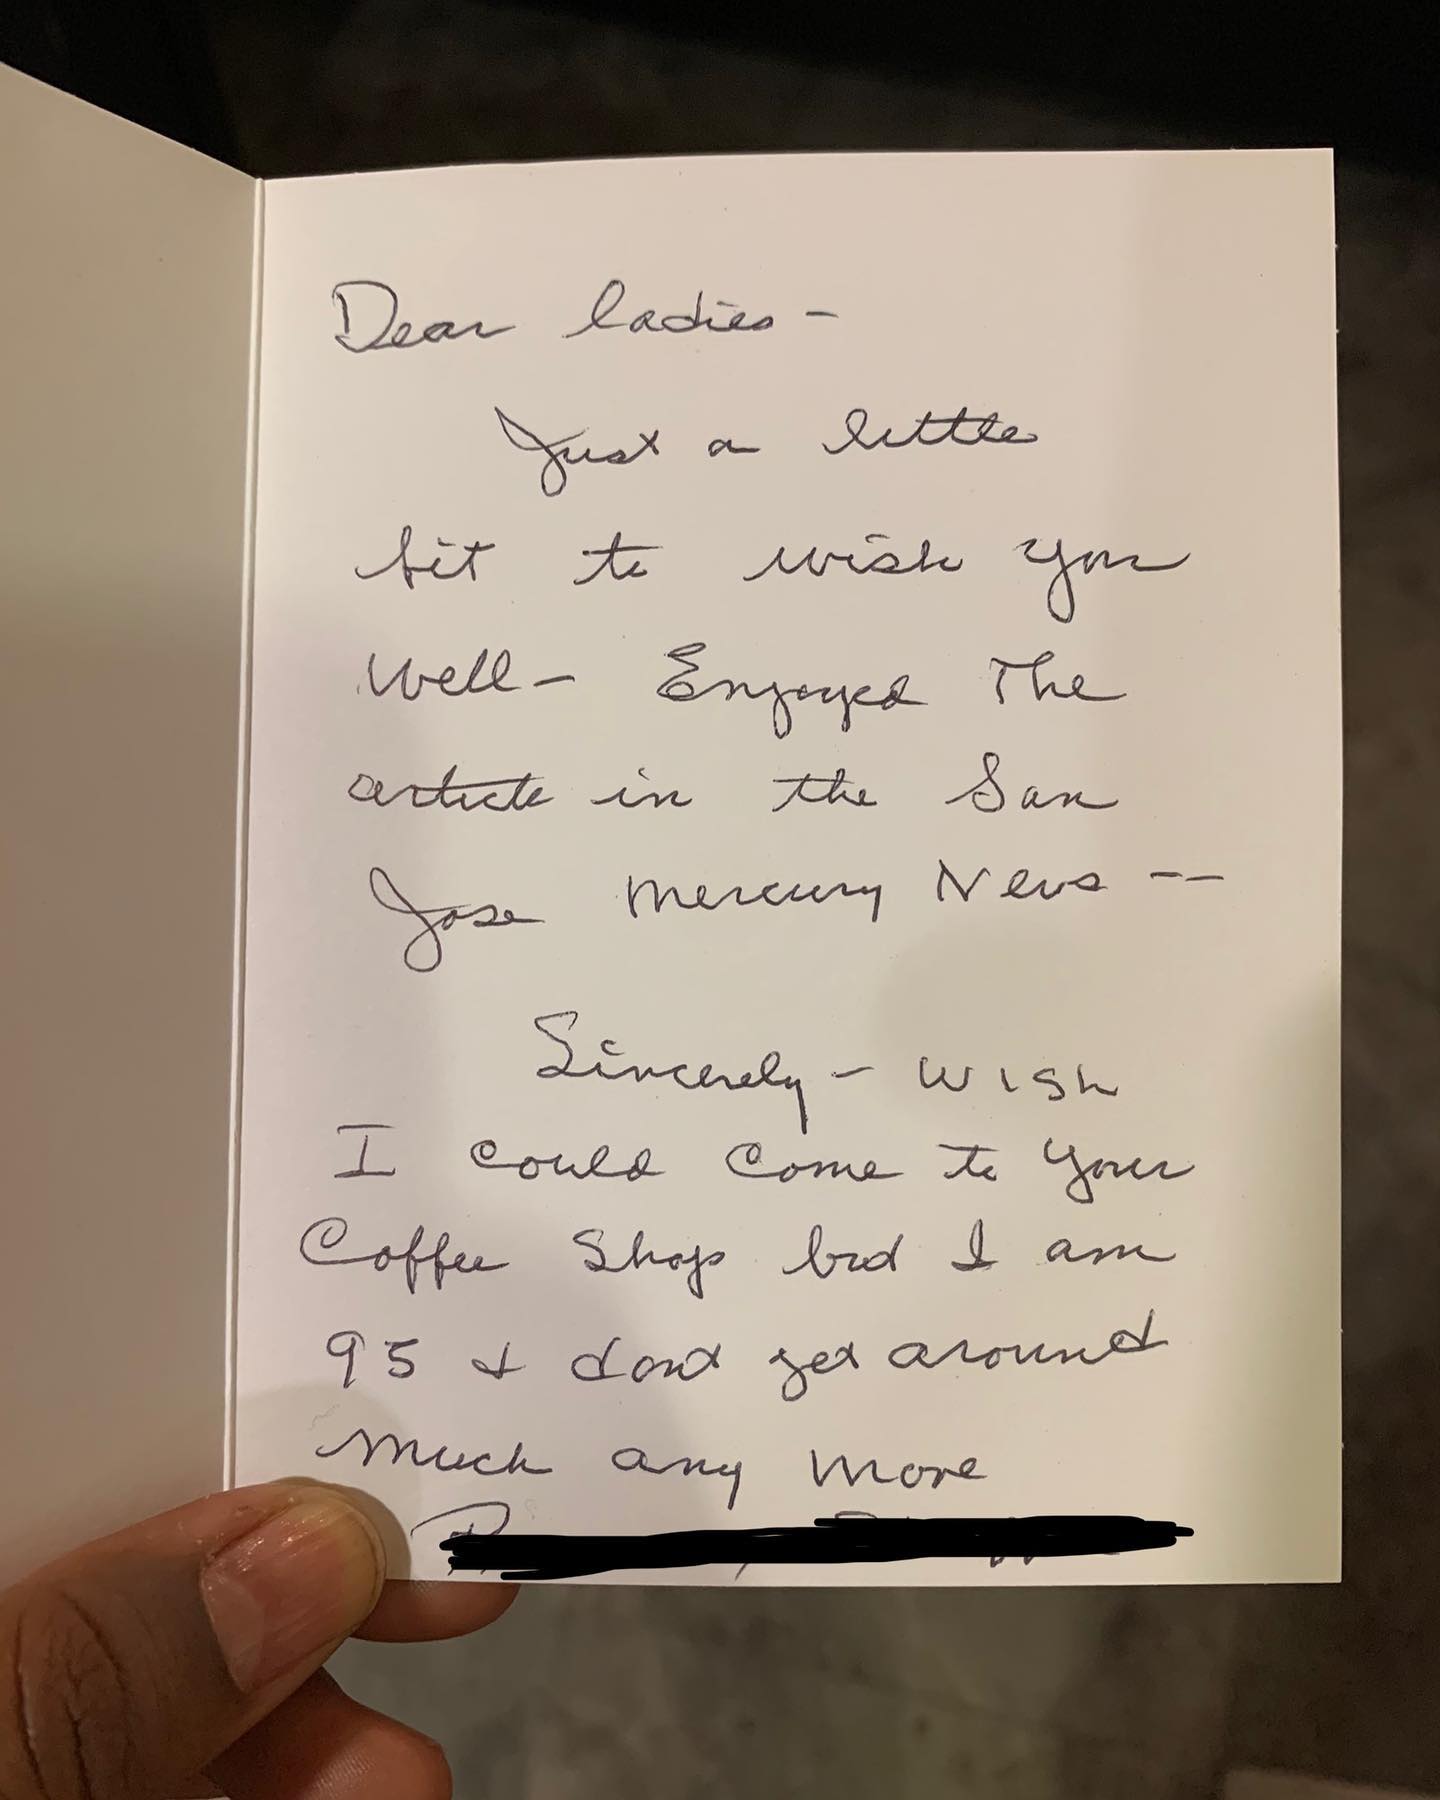 Dear ladies -
Just a little
bit to wish you
well - Enjoyed The
article in the San
Jose Mercury News --
Sincerely - Wish
I could come to your
Coffee Shop but I am
95 & dont get around
much any more